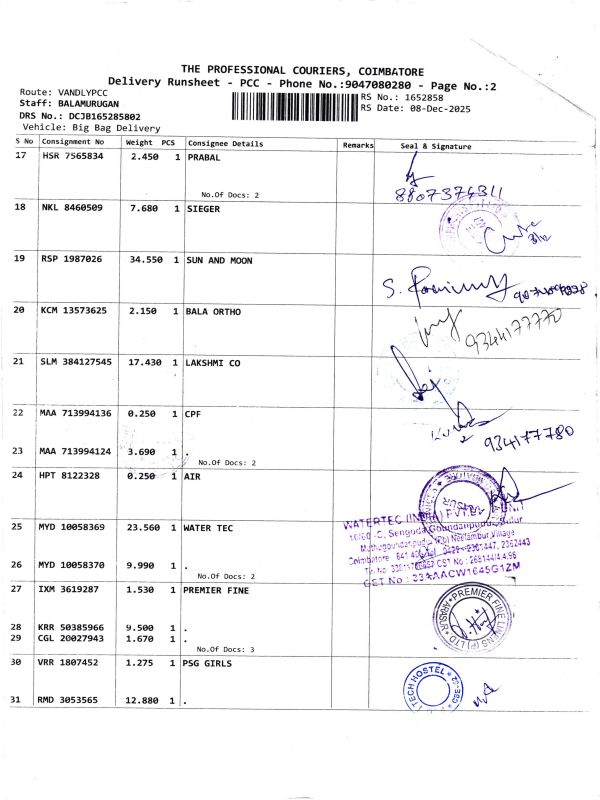 THE PROFESSIONAL COURIERS, COIMBATORE
Delivery Runsheet - PCC - Phone No.:9047080280 - Page No.:2
Route: VANDLYPCC
Staff: BALAMURUGAN
RS No.: 1652858
RS Date: 08-Dec-2025
DRS No.: DCJB165285802
Vehicle: Big Bag Delivery
S No Consignment No Weight PCS Consignee Details Remarks Seal & Signature
17 HSR 7565834 2.450 1 PRABAL
No.Of Docs: 2
8807374311
18 NKL 8460509 7.680 1 SIEGER
19 RSP 1987026 34.550 1 SUN AND MOON
S.
20 KCM 13573625 2.150 1 BALA ORTHO
9344177770
21 SLM 384127545 17.430 1 LAKSHMI CO
22 MAA 713994136 0.250 1 CPF
934177780
23 MAA 713994124 3.690 1 .
No.Of Docs: 2
24 HPT 8122328 0.250 1 AIR
ARASUR
25 MYD 10058369 23.560 1 WATER TEC
WATERTEC (INDIA) PVT.
10/60 -C, Sengoda Goundanpudur
Neelambur Village
Coimbatore 641
GST No : 33AAACW1645G1ZM
26 MYD 10058370 9.990 1 .
No.Of Docs: 2
27 IXM 3619287 1.530 1 PREMIER FINE
PREMIER FINE LINENS (P) LTD
ARASUR
28 KRR 50385966 9.500 1 .
29 CGL 20027943 1.670 1 .
No.Of Docs: 3
30 VRR 1807452 1.275 1 PSG GIRLS
TECH HOSTEL
31 RMD 3053565 12.880 1 .